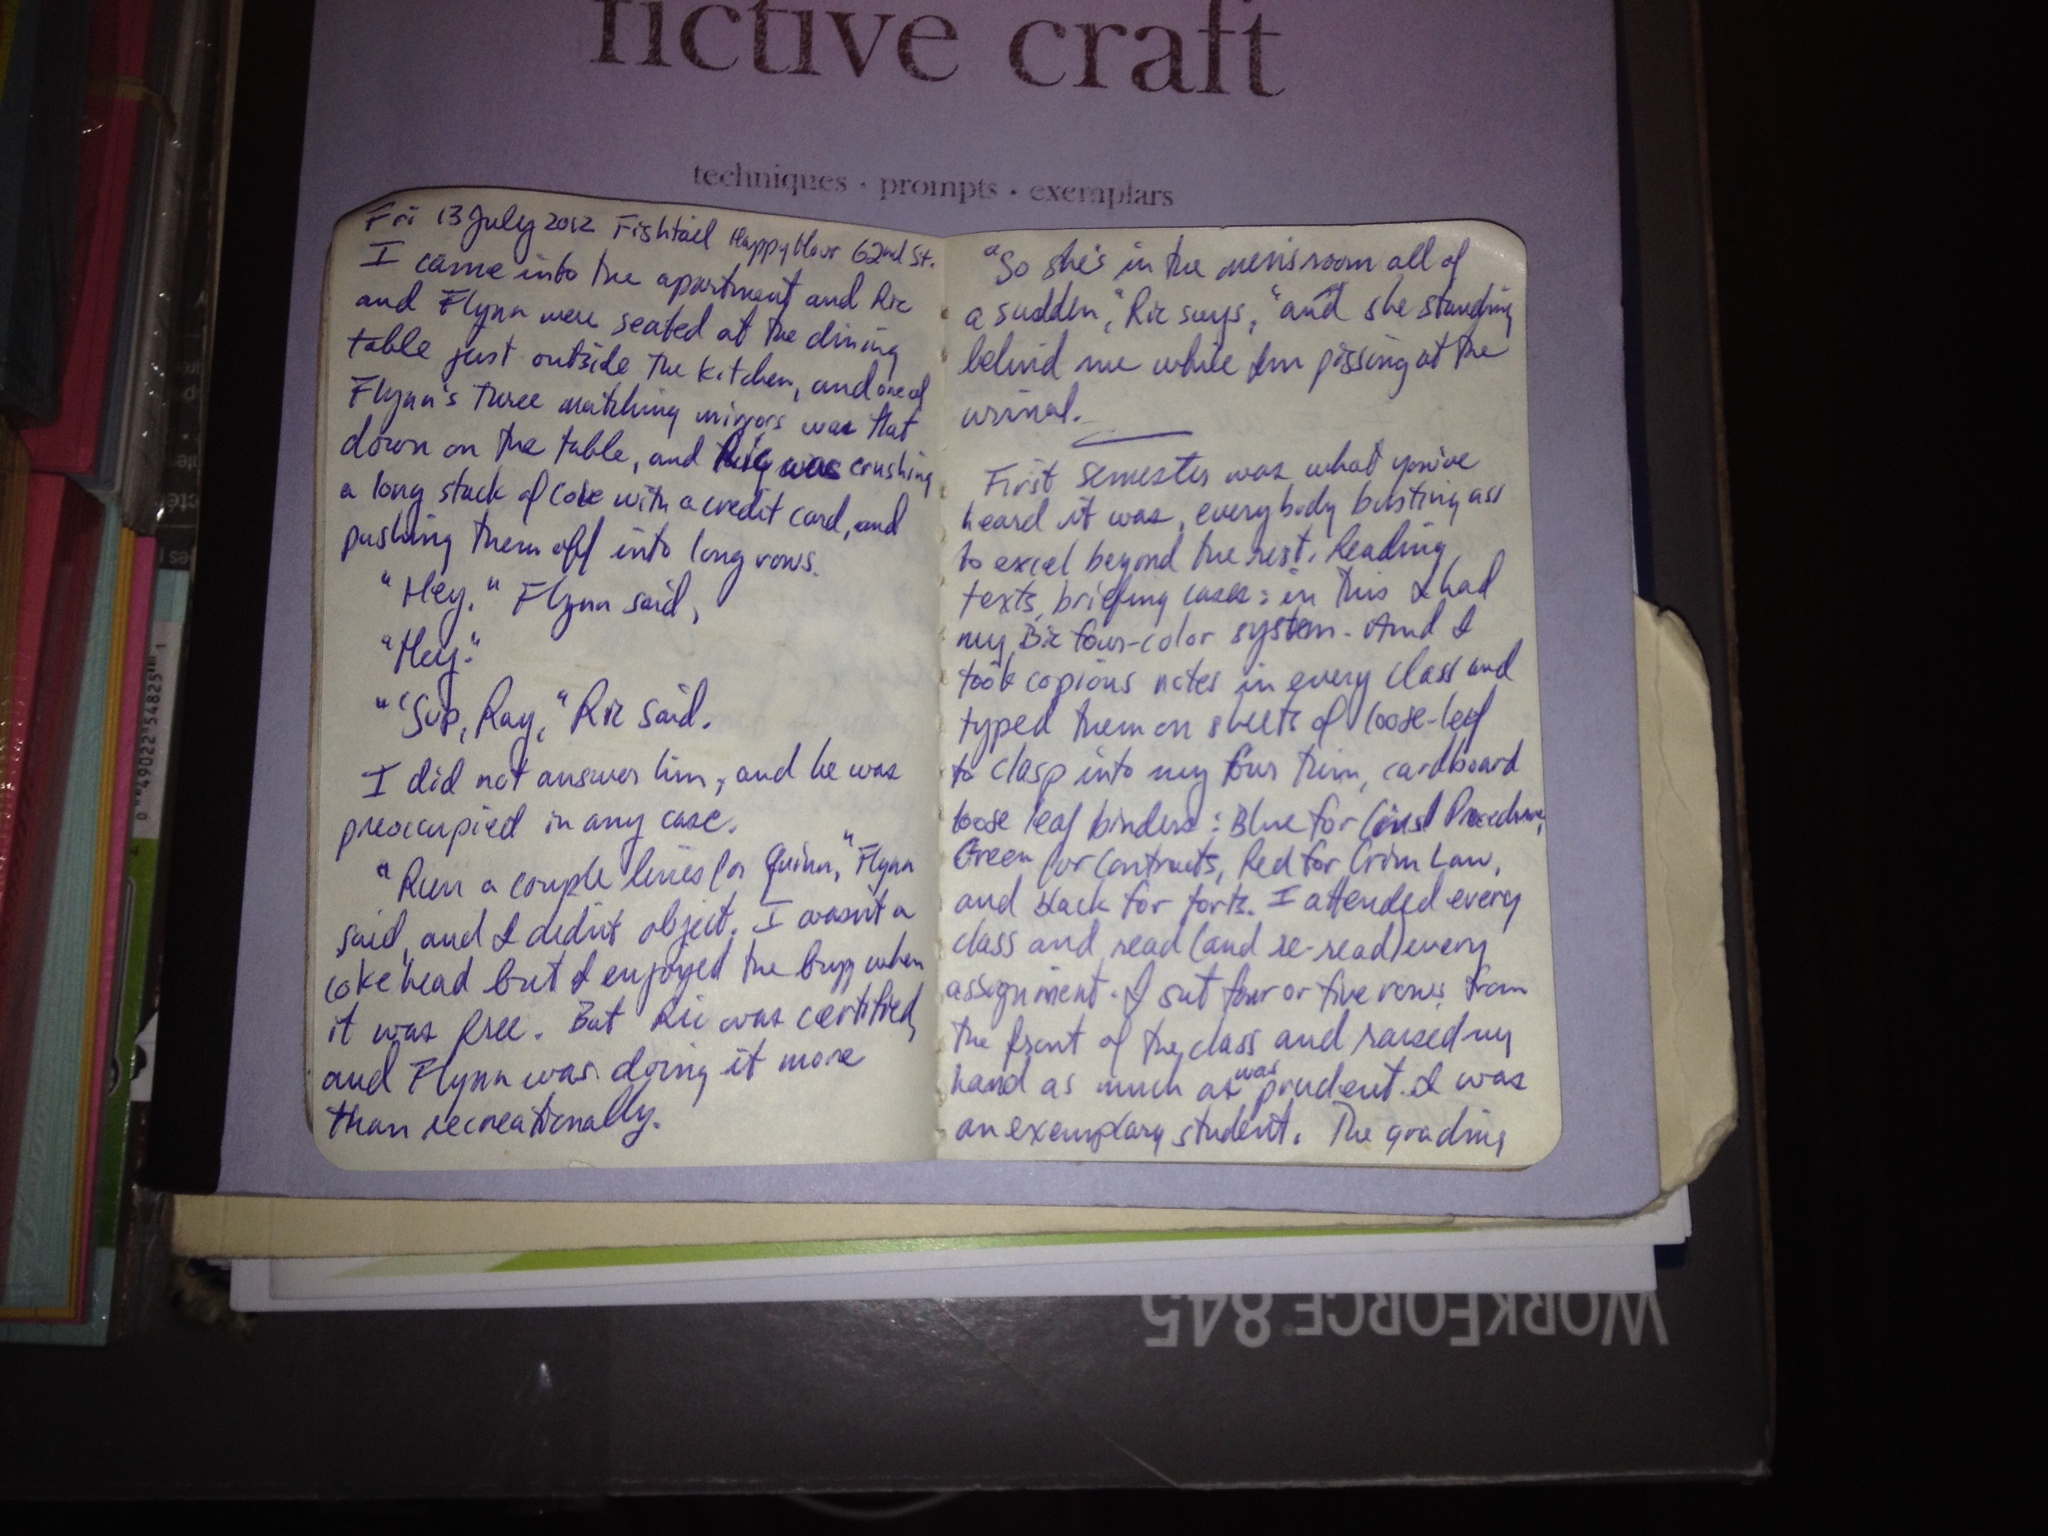 fictive craft
techniques · prompts · exemplars
Fri 13 July 2012 Fishtail Happy Hour 62nd St.
I came into the apartment and Ric
and Flynn were seated at the dining
table just outside the kitchen, and one of
Flynn's three matching mirrors was flat
down on the table, and Ric was crushing
a long stack of coke with a credit card, and
pushing them off into long rows.
"Hey," Flynn said,
"Hey."
"'Sup, Ray," Ric said.
I did not answer him, and he was
preoccupied in any case.
"Run a couple lines for Quinn," Flynn
said, and I didn't object. I wasn't a
cokehead but I enjoyed the buzz when
it was free. But Ric was certified,
and Flynn was doing it more
than recreationally.
"So she's in the men's room all of
a sudden," Ric says, "and she standing
behind me while I'm pissing at the
urinal.
First semester was what you've
heard it was, everybody busting ass
to excel beyond the rest. Reading
texts, briefing cases: in this I had
my Bic four-color system. And I
took copious notes in every class and
typed them on sheets of loose-leaf
to clasp into my four thin, cardboard
loose leaf binders: Blue for Procedure,
Green for Contracts, Red for Crim Law,
and black for torts. I attended every
class and read (and re-read) every
assignment. I sat four or five rows from
the front of the class and raised my
hand as much as was prudent. I was
an exemplary student. The grading
WORKFORCE 845
0 49022 54825 1